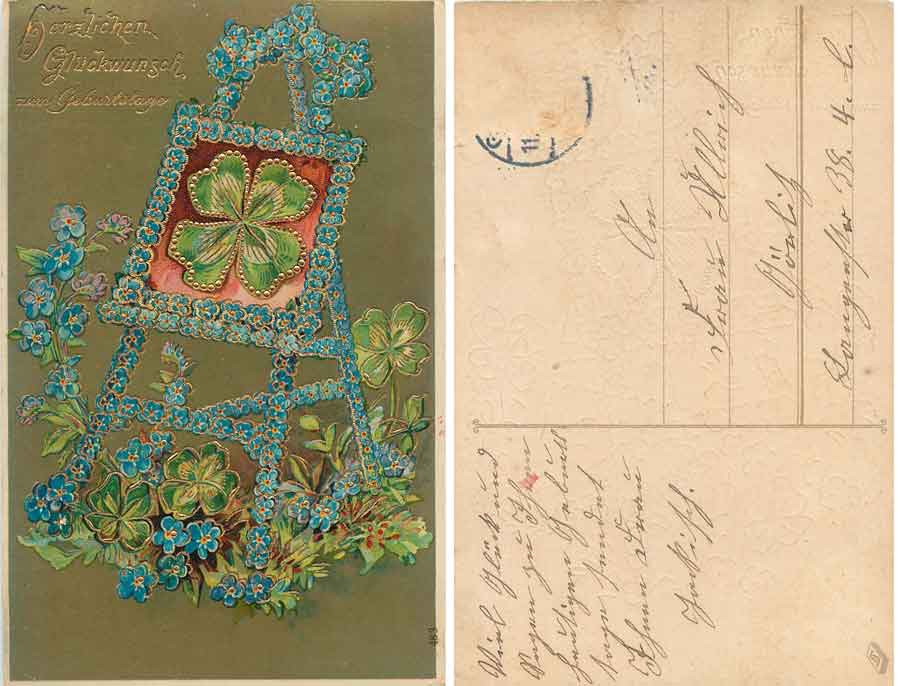 Herzlichen
Glückwunsch
zum Geburtstage
11.
An
Frau Ullrich
Görlitz
Langenstr 38. 4. l.
Viel Glück und
Segen zu Ihrem
heutigen Geburts
tage sendet
Ihnen Frau